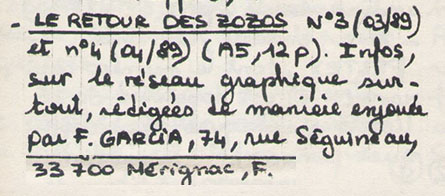 - LE RETOUR DES ZOZOS N°3 (03/89)
et n°4 (04/89) (A5, 12 p). Infos,
sur le réseau graphique sur-
tout, rédigées de manière enjouée
par F. GARCIA, 74, rue Séguineau,
33 700 Mérignac, F.